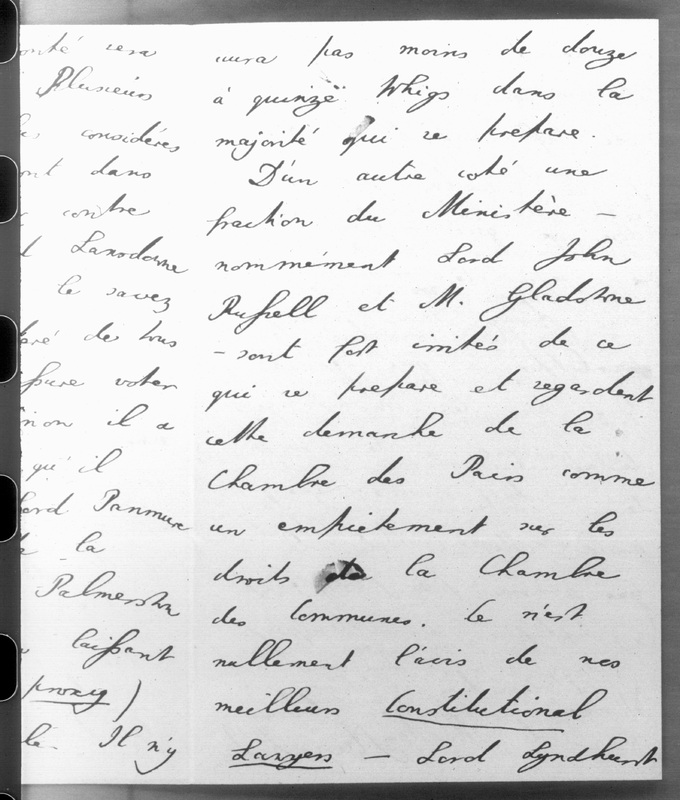 sera
Plusieurs
considérés
dans
contre
Lansdowne
le savez
de tous
voter
il a
qu'il
Lord Panmure
la
Palmerston
laissant
proxy)
Il n'y
aura pas moins de douze
à quinze Whigs dans la
majorité qui se prépare.
D'un autre coté une
fraction du Ministère —
nommément Lord John
Russell et M. Gladstone
— sont fort irrités de ce
qui se prépare et regardent
cette démarche de la
Chambre des Pairs comme
un empiètement sur les
droits de la Chambre
des Communes. Ce n'est
nullement l'avis de nos
meilleurs Constitutional
Lawyers — Lord Lyndhurst